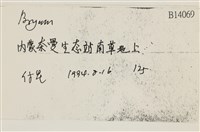 Bryum
B14069
内蒙奈曼生态站南草地上
1994.8.16
125